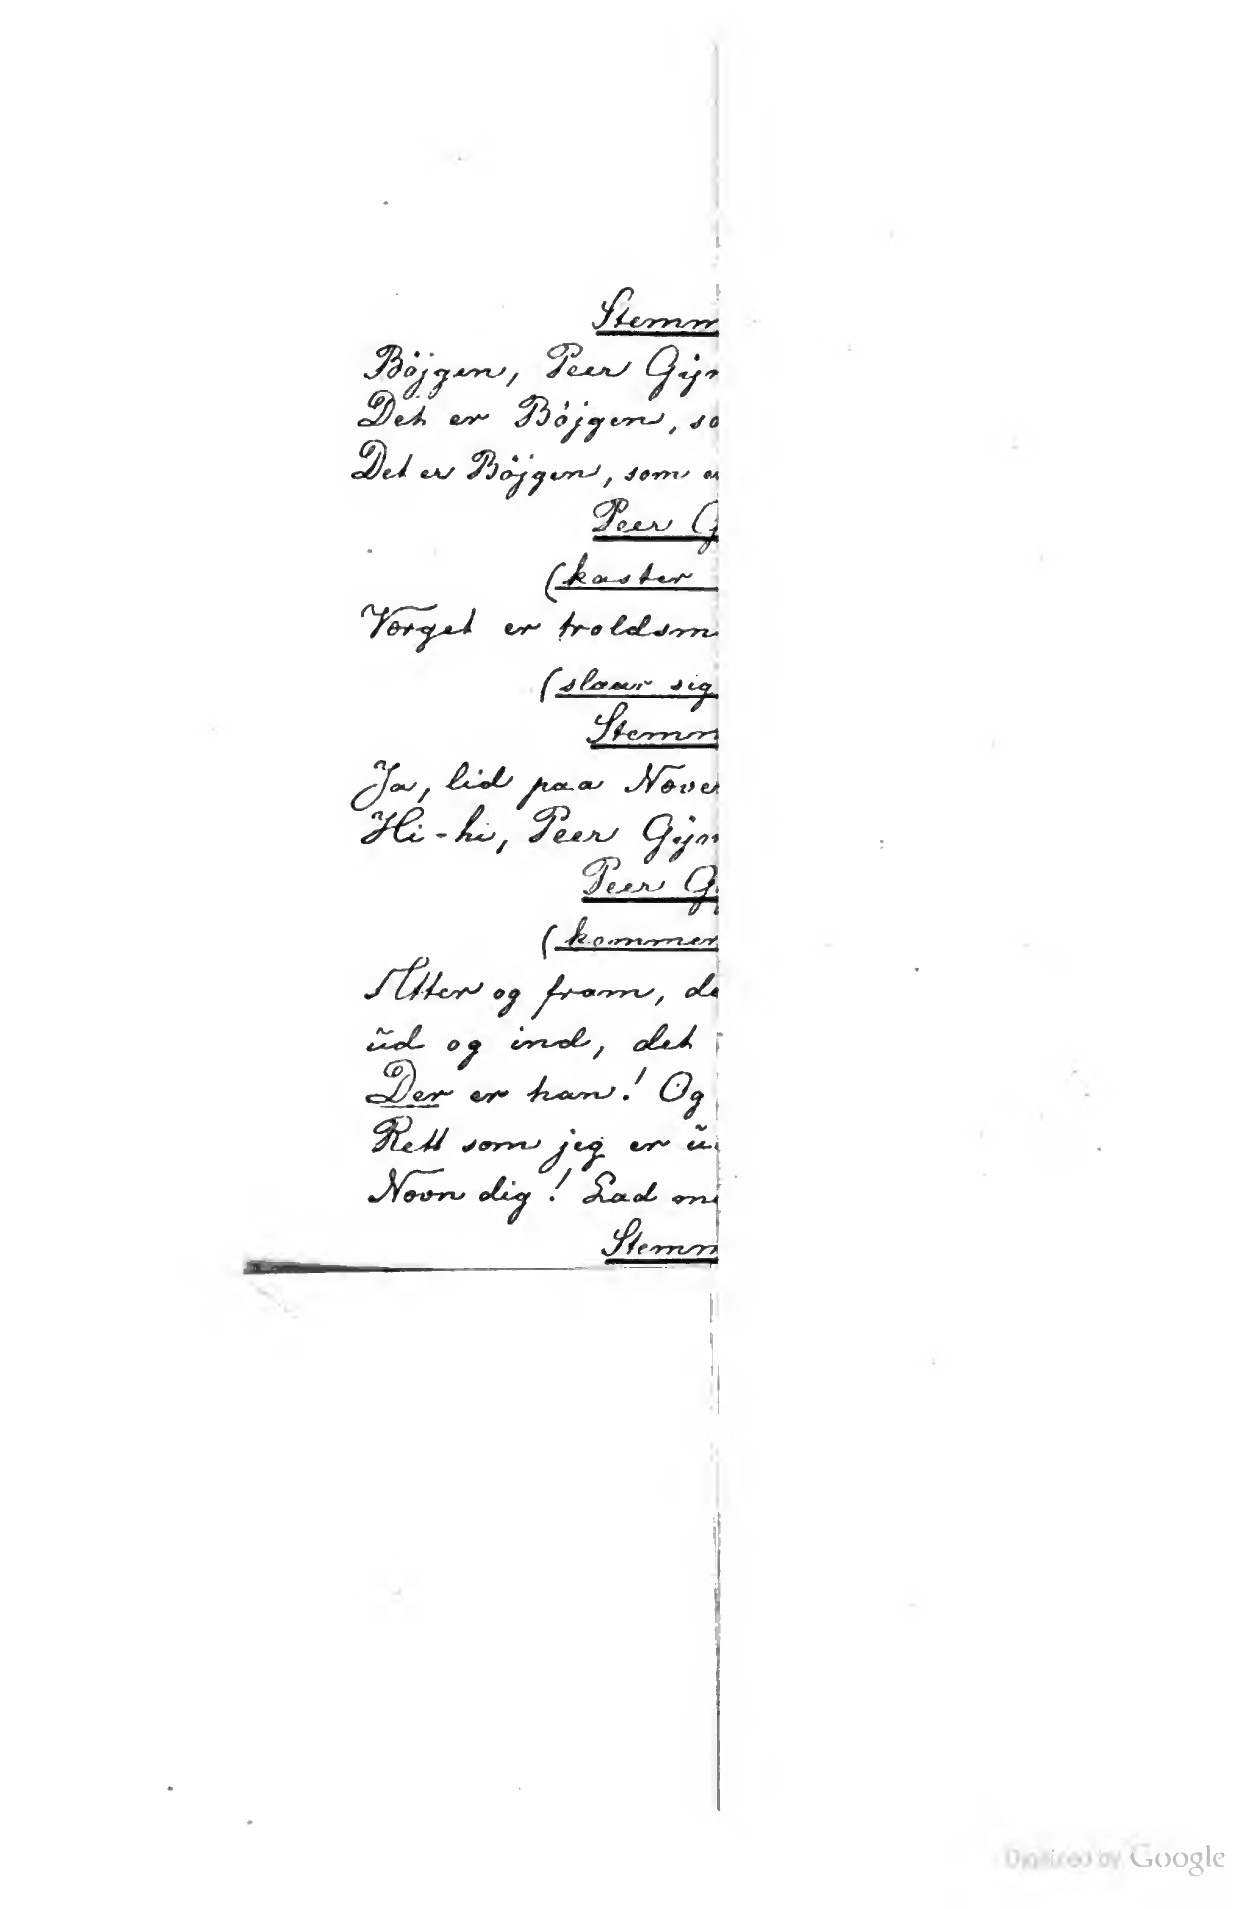 Stemm
Böjgen, Peer Gyn
Det er Böjgen, so
Det er Böjgen, som
Peer G
(kaster
Værget er troldsm
(slaar sig
Stemm
Ja, lid paa Næve
Hi-hi, Peer Gyn
Peer G
(kommer
Atter og fram, de
ud og ind, det
Der er han! Og
Rett som jeg er u
Nævn dig! Lad
Stemm
Digitized by Google